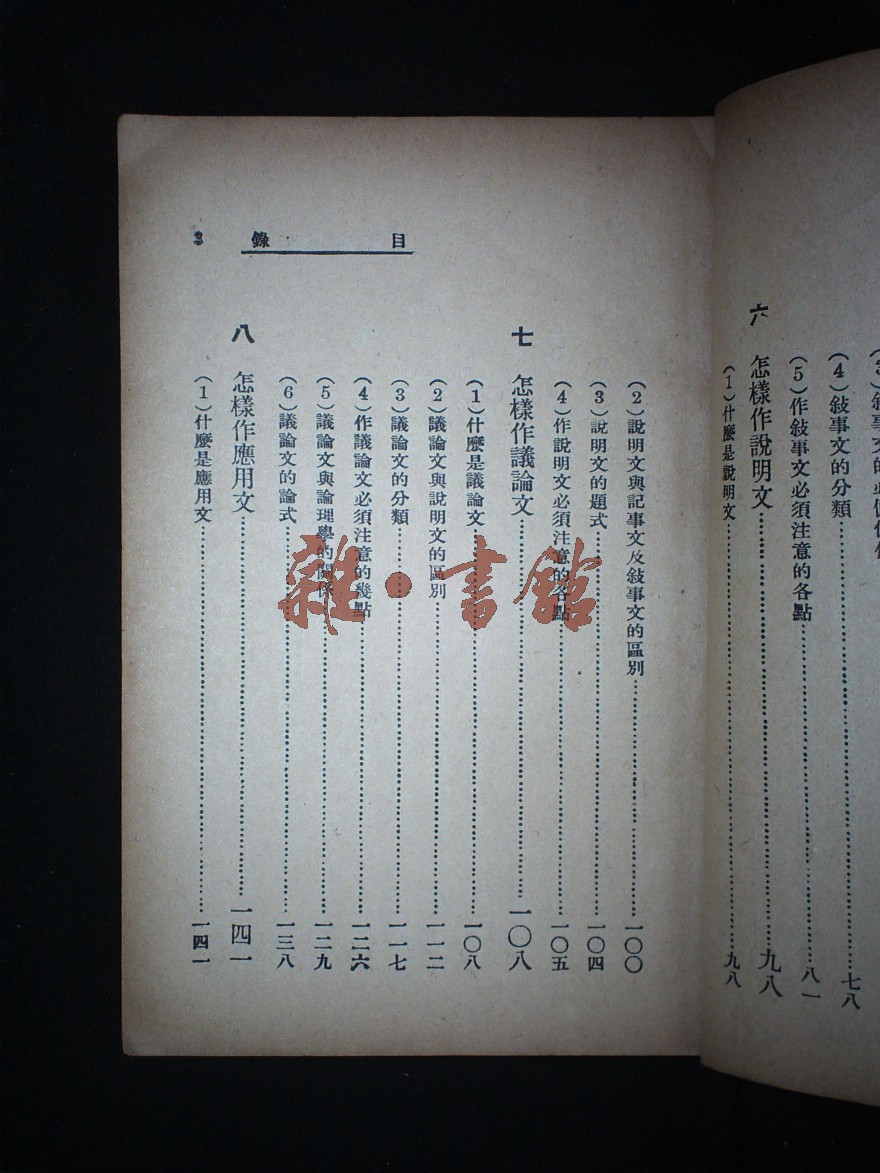 (4)敍事文的分類……七八
(5)作敍事文必須注意的各點……八一
六 怎樣作說明文……九八
(1)什麼是說明文……九八
目錄 3
(2)說明文與記事文及敍事文的區別……一〇〇
(3)說明文的題式……一〇四
(4)作說明文必須注意的各點……一〇五
七 怎樣作議論文……一〇八
(1)什麼是議論文……一〇八
(2)議論文與說明文的區別……一一二
(3)議論文的分類……一一七
(4)作議論文必須注意的幾點……一二六
(5)議論文與論理學的關係……一二九
(6)議論文的論式……一三八
八 怎樣作應用文……一四一
(1)什麼是應用文……一四一
雜·書館